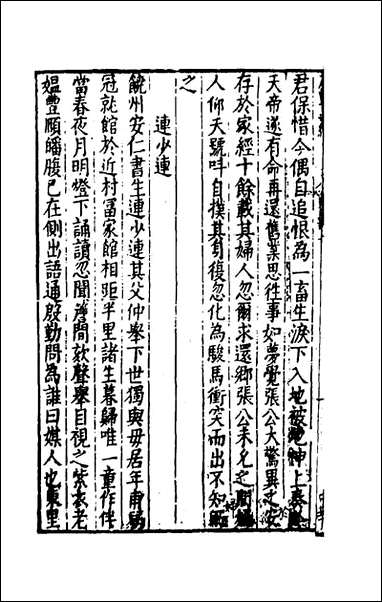 君保惜今偶自追恨為一畜生淚下入地被地神上奏
天帝遂有命再還舊業思徃事如夢覺張公大驚異之安
存於家經十餘載其婦人忽尔求還鄉張公未允之間
人仰天號呌自撲其身復忽化為駿馬衝突而出不知
之
連少連
饒州安仁書生連少連其父仲舉下世獨與毋居年甫弱
冠就館於近村冨家館相距半里諸生暮歸唯一童作伴
當春夜月明燈下誦讀忽聞䆫間欬聲舉目視之紫衣老
媪豐頤皤腹已在側出語通殷勤問為誰曰媒人也東里